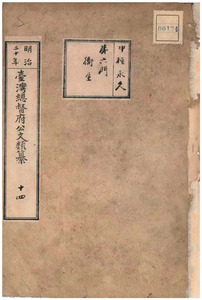 甲種永久
第六門
衛生
明治
三十年
臺灣總督府公文類纂
十四